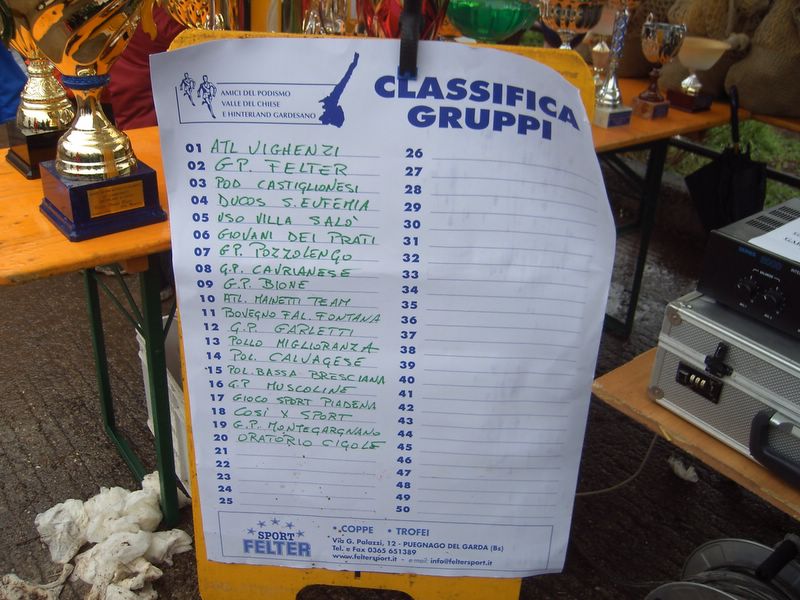 AMICI DEL PODISMO
VALLE DEL CHIESE
E HINTERLAND GARDESANO
CLASSIFICA
GRUPPI
01 ATL VIGHENZI
02 G.P. FELTER
03 POD CASTIGLIONESI
04 DUCOS S. EUFEMIA
05 USO VILLA SALO'
06 GIOVANI DEI PRATI
07 G.P. POZZOLENGO
08 G.P. CAVRIANESE
09 G.P. BIONE
10 ATL. MAINETTI TEAM
11 BOVEGNO FAL. FONTANA
12 G.P. GARLETTI
13 POLLO MIGLIORANZA
14 POL. CALVAGESE
15 POL. BASSA BRESCIANA
16 G.P MUSCOLINE
17 GIOCO SPORT PIADENA
18 COSI X SPORT
19 G.P. MONTEGARGNANO
20 ORATORIO CIGOLE
21
22
23
24
25
26
27
28
29
30
31
32
33
34
35
36
37
38
39
40
41
42
43
44
45
46
47
48
49
50
SPORT
FELTER
• COPPE • TROFEI
Via G. Palazzi, 12 - PUEGNAGO DEL GARDA (Bs)
Tel. e Fax 0365 651389
www.feltersport.it - e-mail: info@feltersport.it